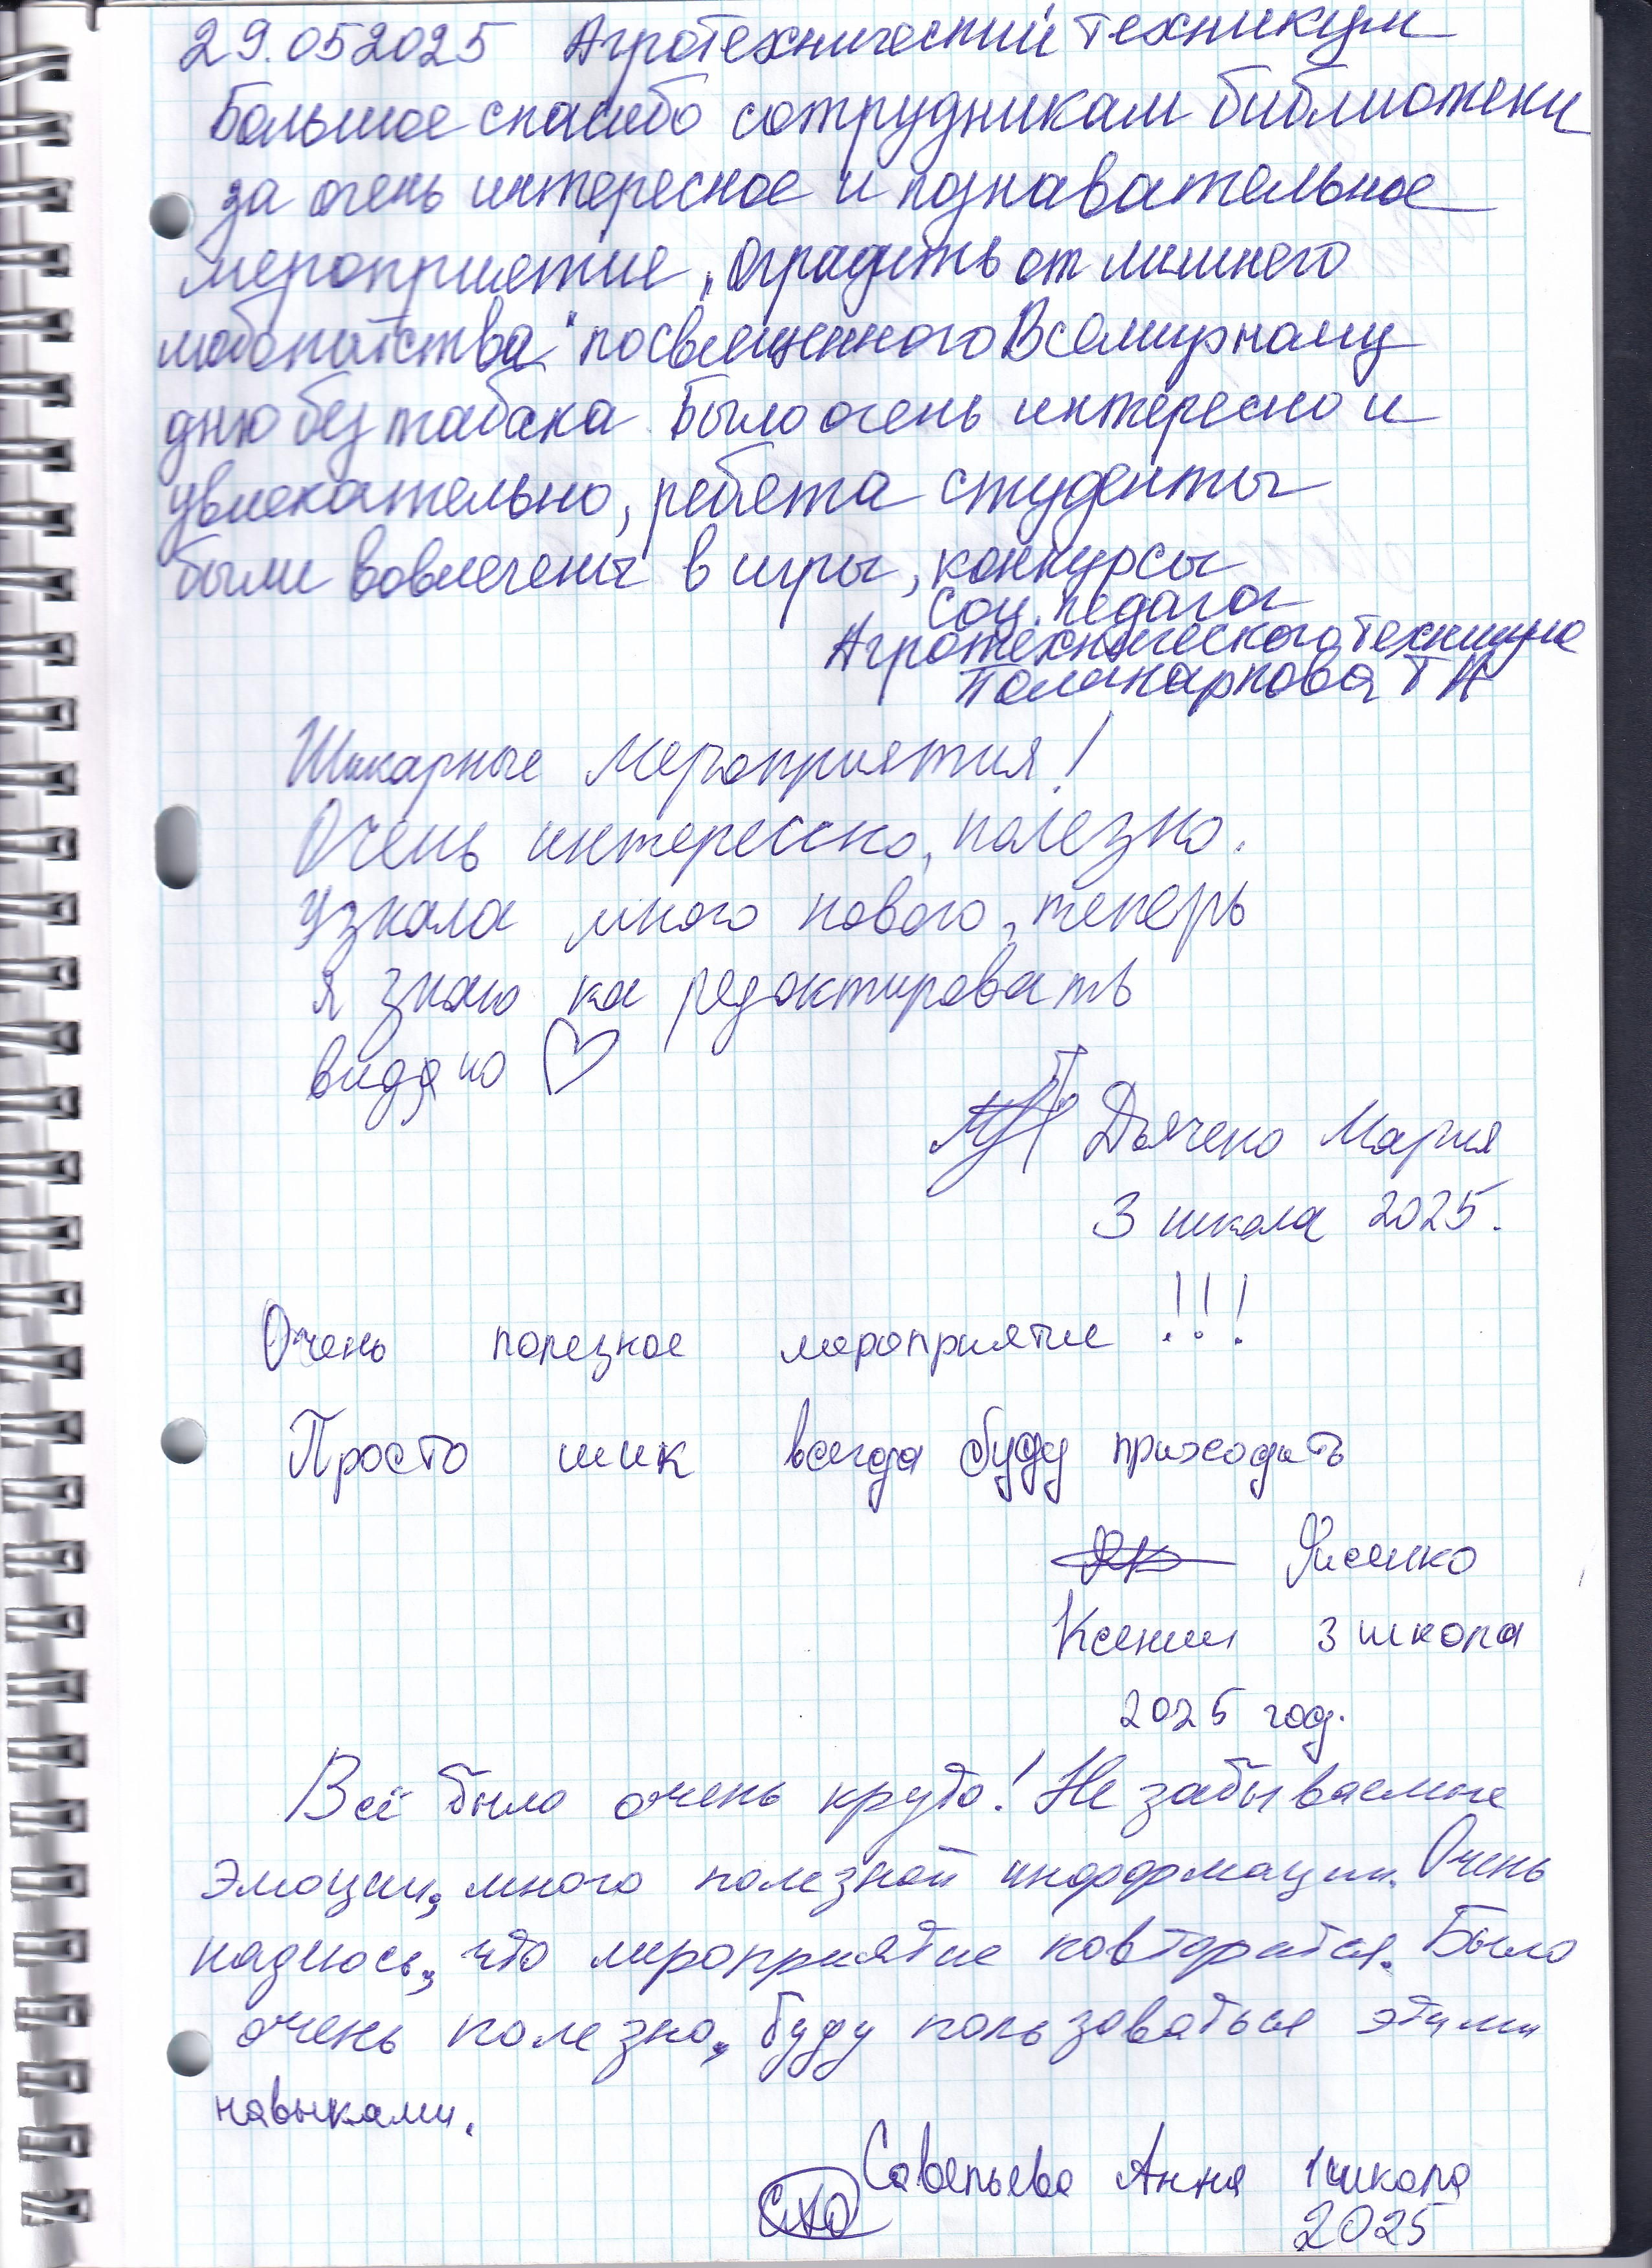 29.05 2025 Агротехнический техникум
Большое спасибо сотрудникам библиотеки
за очень интересное и познавательное
мероприятие „Оградить от лишнего
любопытства" посвященного Всемирному
дню без табака. Было очень интересно и
увлекательно, ребята студенты
были вовлечены в игры, конкурсы
Соц. педагог
Агротехнического техникума
Поликарпова Т А
Шикарные мероприятия!
Очень интерессно, полезно.
Узнала много нового, теперь
я знаю ка редактировать
видяно ♡
Дьячено Мария
3 школа 2025.
Очень полезное мероприятие !!!
Просто шик всегда буду приходить
Ксении 3 школа
2025 год.
Всё было очень круто! Не забываемые
эмоции, много полезной информации. Очень
надеюсь, что мероприятие повторится. Было
очень полезно, буду пользоваться этими
навыками.
Савельева Анна 1 школа
2025